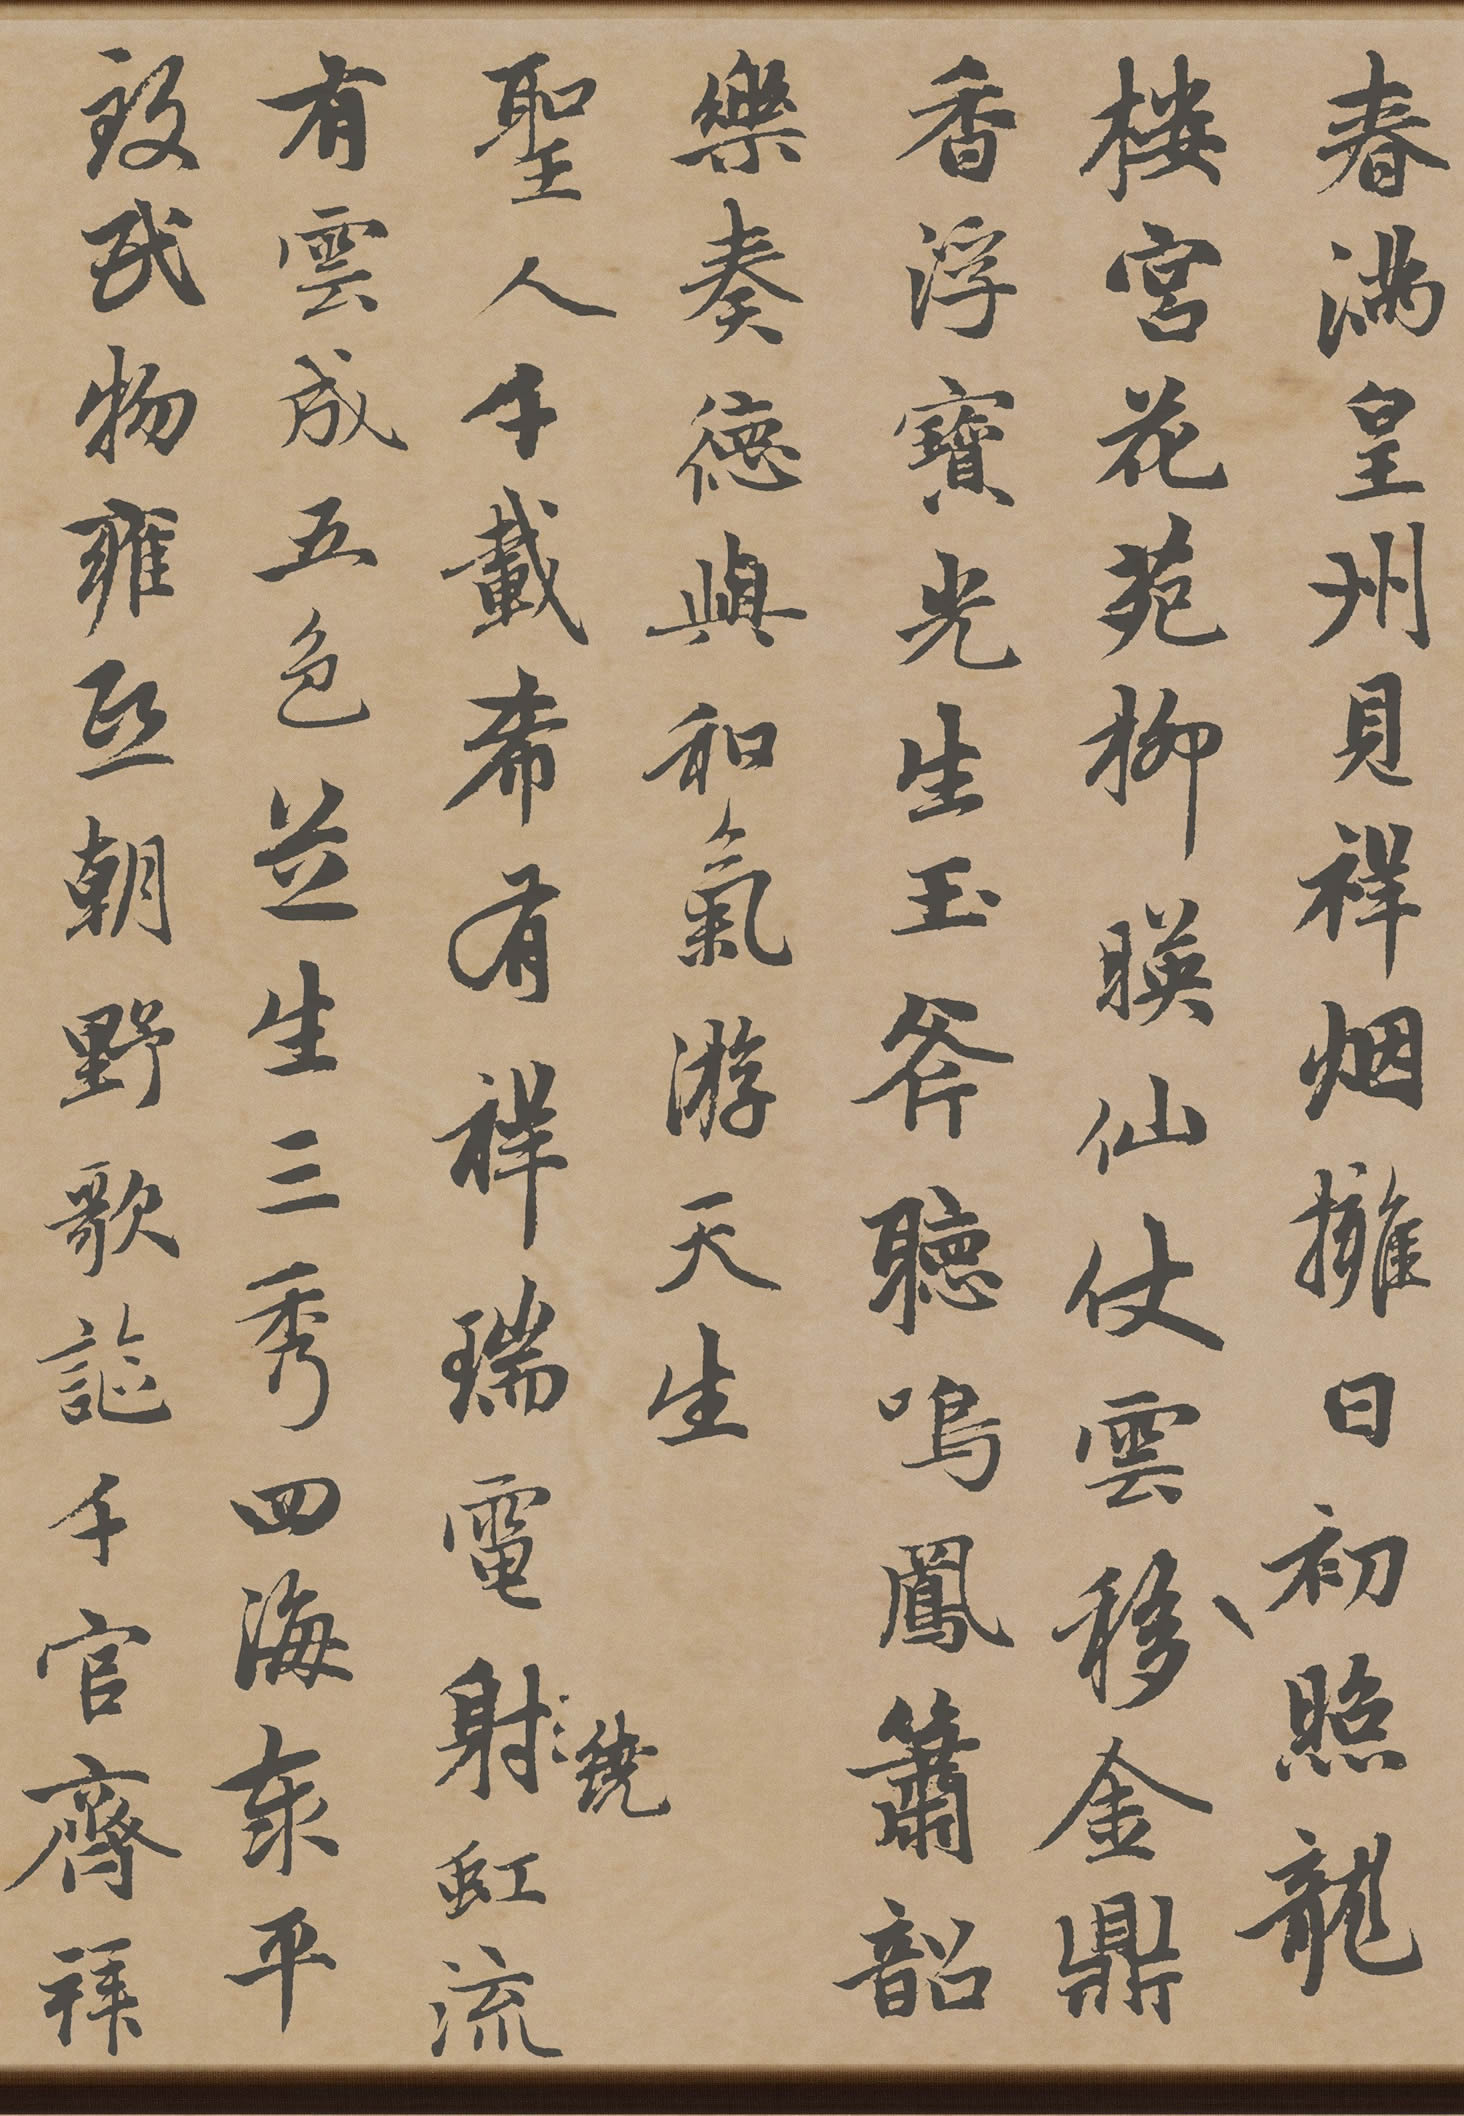 春満皇州見祥烟擁日初照龍
楼宮花苑柳暎仙仗雲移金鼎
香浮寶光生玉斧聽鳴鳳簫韶
樂奏德與和氣游天生
聖人千載希有祥瑞電射虹流
繞
有雲成五色並生三秀四海泰平
致民物雍熙朝野歌謳千官齊拜